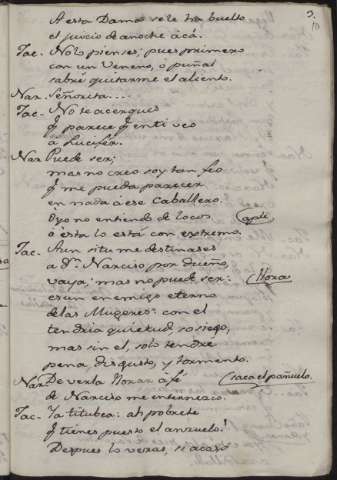 A esta Dama se le ha buelto
el juicio de anoche acà.
3.
10
Jac. No lo pienses; pues primero
con un Veneno, ò puñal
sabrè quitarme el aliento.
Nar. Señorita....
Jac. No te acerques
q̃ parece q̃ en ti veo
à Lucifer.
Nar. Puede ser;
mas no creo soy tan feo
q̃ me pueda parecer
en nada à ese Caballero.
O yo no entiendo de locos (apte.
ò esta lo està con extremo.
Jac. Aun si tu me destinases
a Dn. Narciso por dueño,
vaya; mas no puede ser: (llora
es un enemigo eterno
de las Mugeres: con el
tendria quietud, sosiego,
mas sin el, solo tendrè
pena, disgusto, y tormento.
Nar. De verla llorar, à fè (saca el pañuelo.
de Narciso me enternezco.
Jac. Ya titubea: ah pobrete
q̃ tienes puesto el anzuelo!
Despues lo veras, si acaso